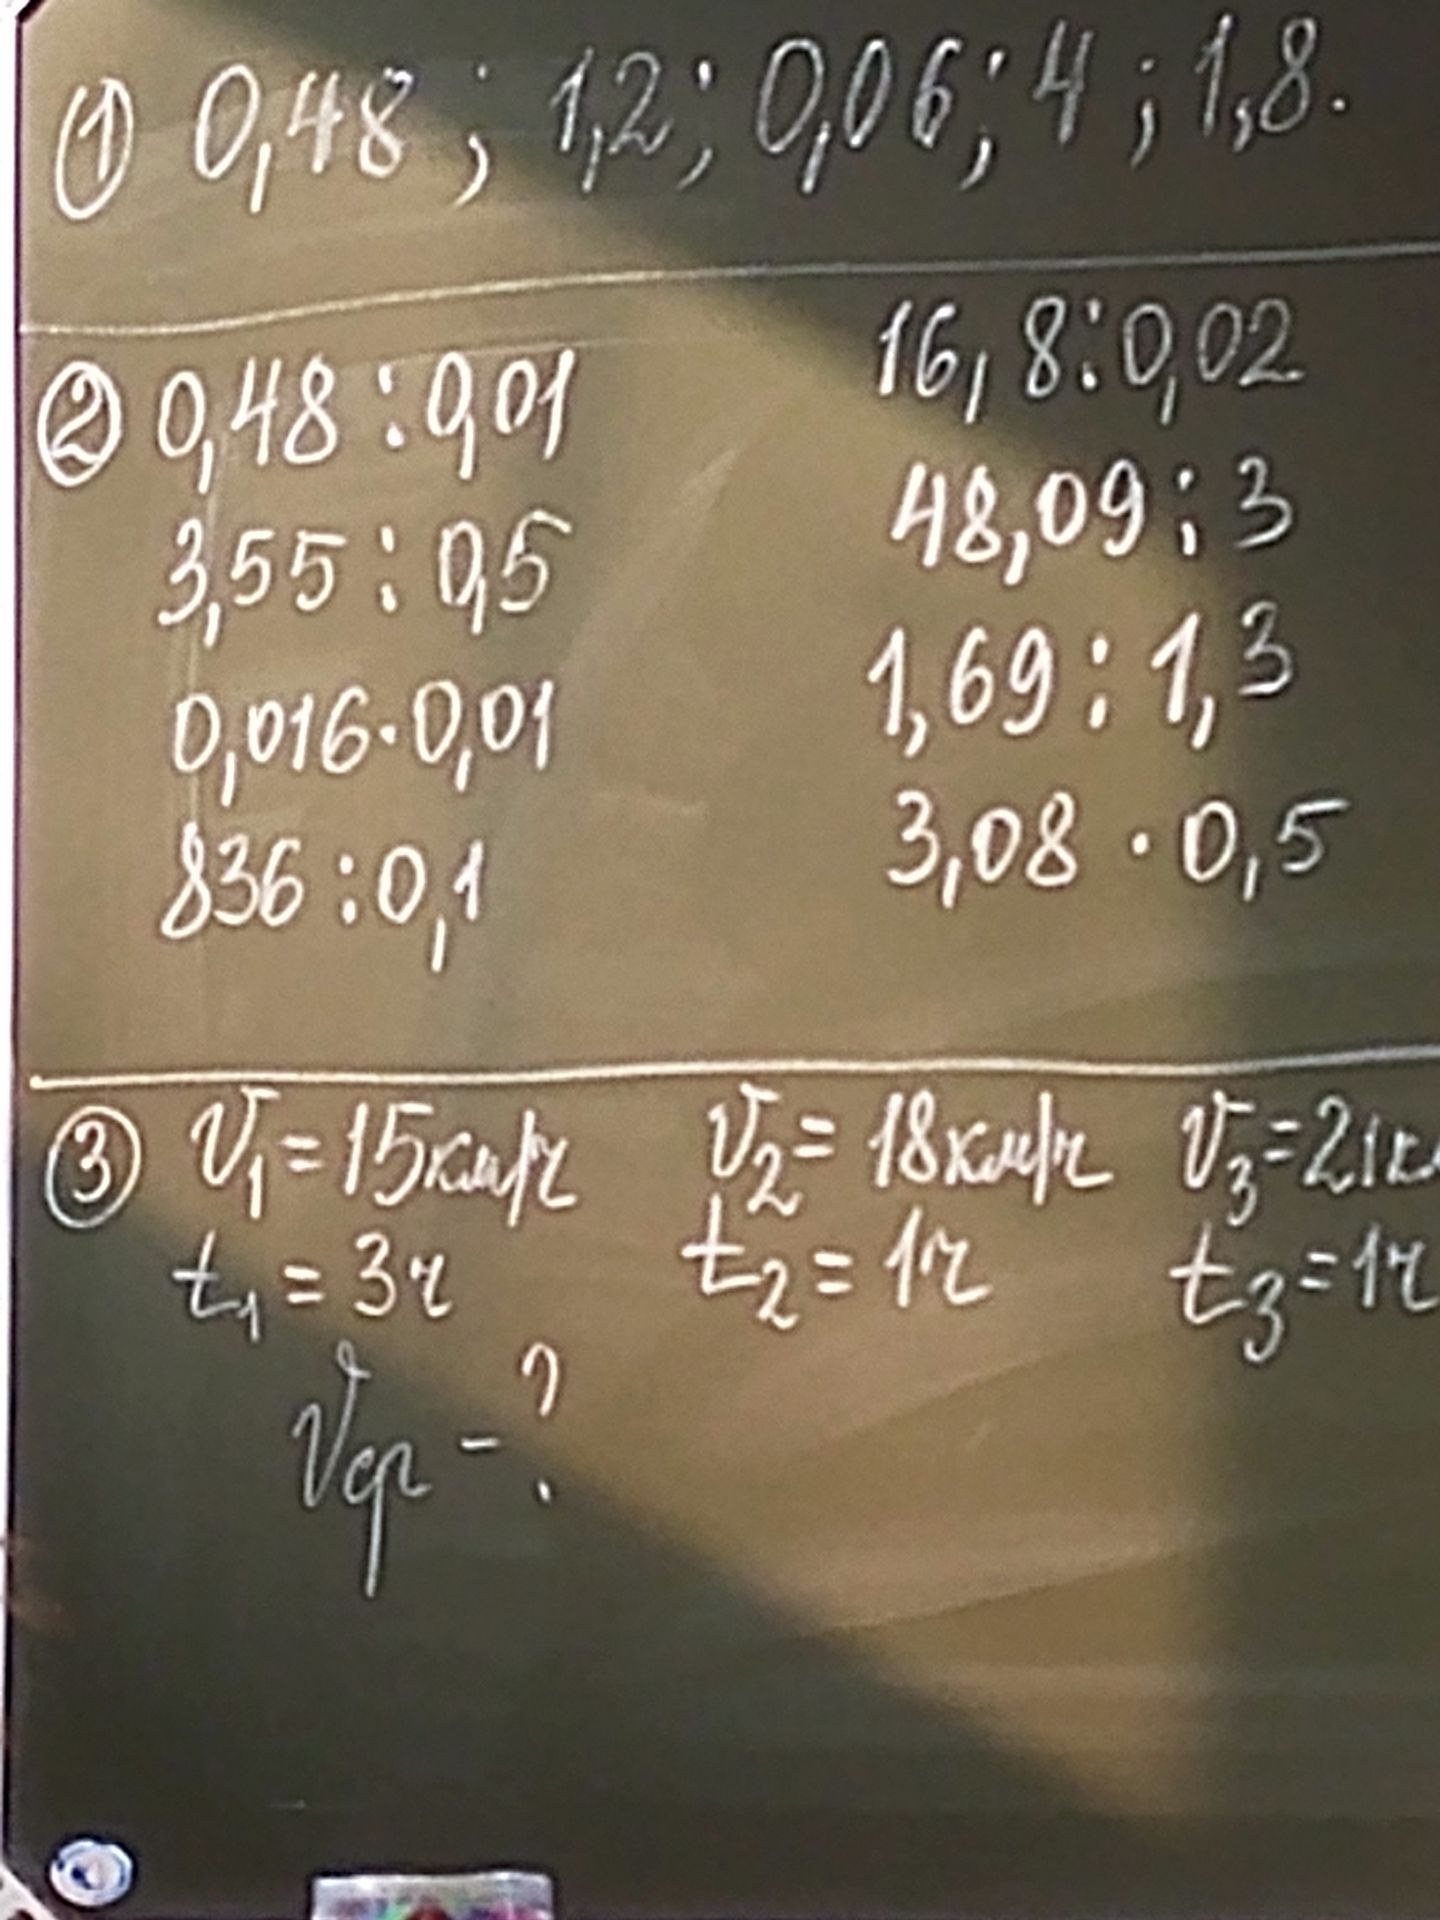 ① 0,48 ; 1,2 ; 0,06 ; 4 ; 1,8.
② 0,48 : 0,01
3,55 : 0,5
0,016 · 0,01
836 : 0,1
16,8 : 0,02
48,09 : 3
1,69 : 1,3
3,08 · 0,5
③ V₁ = 15 км/ч V₂ = 18 км/ч V₃ = 21 к
t₁ = 3 ч t₂ = 1 ч t₃ = 1 ч
Vср - ?